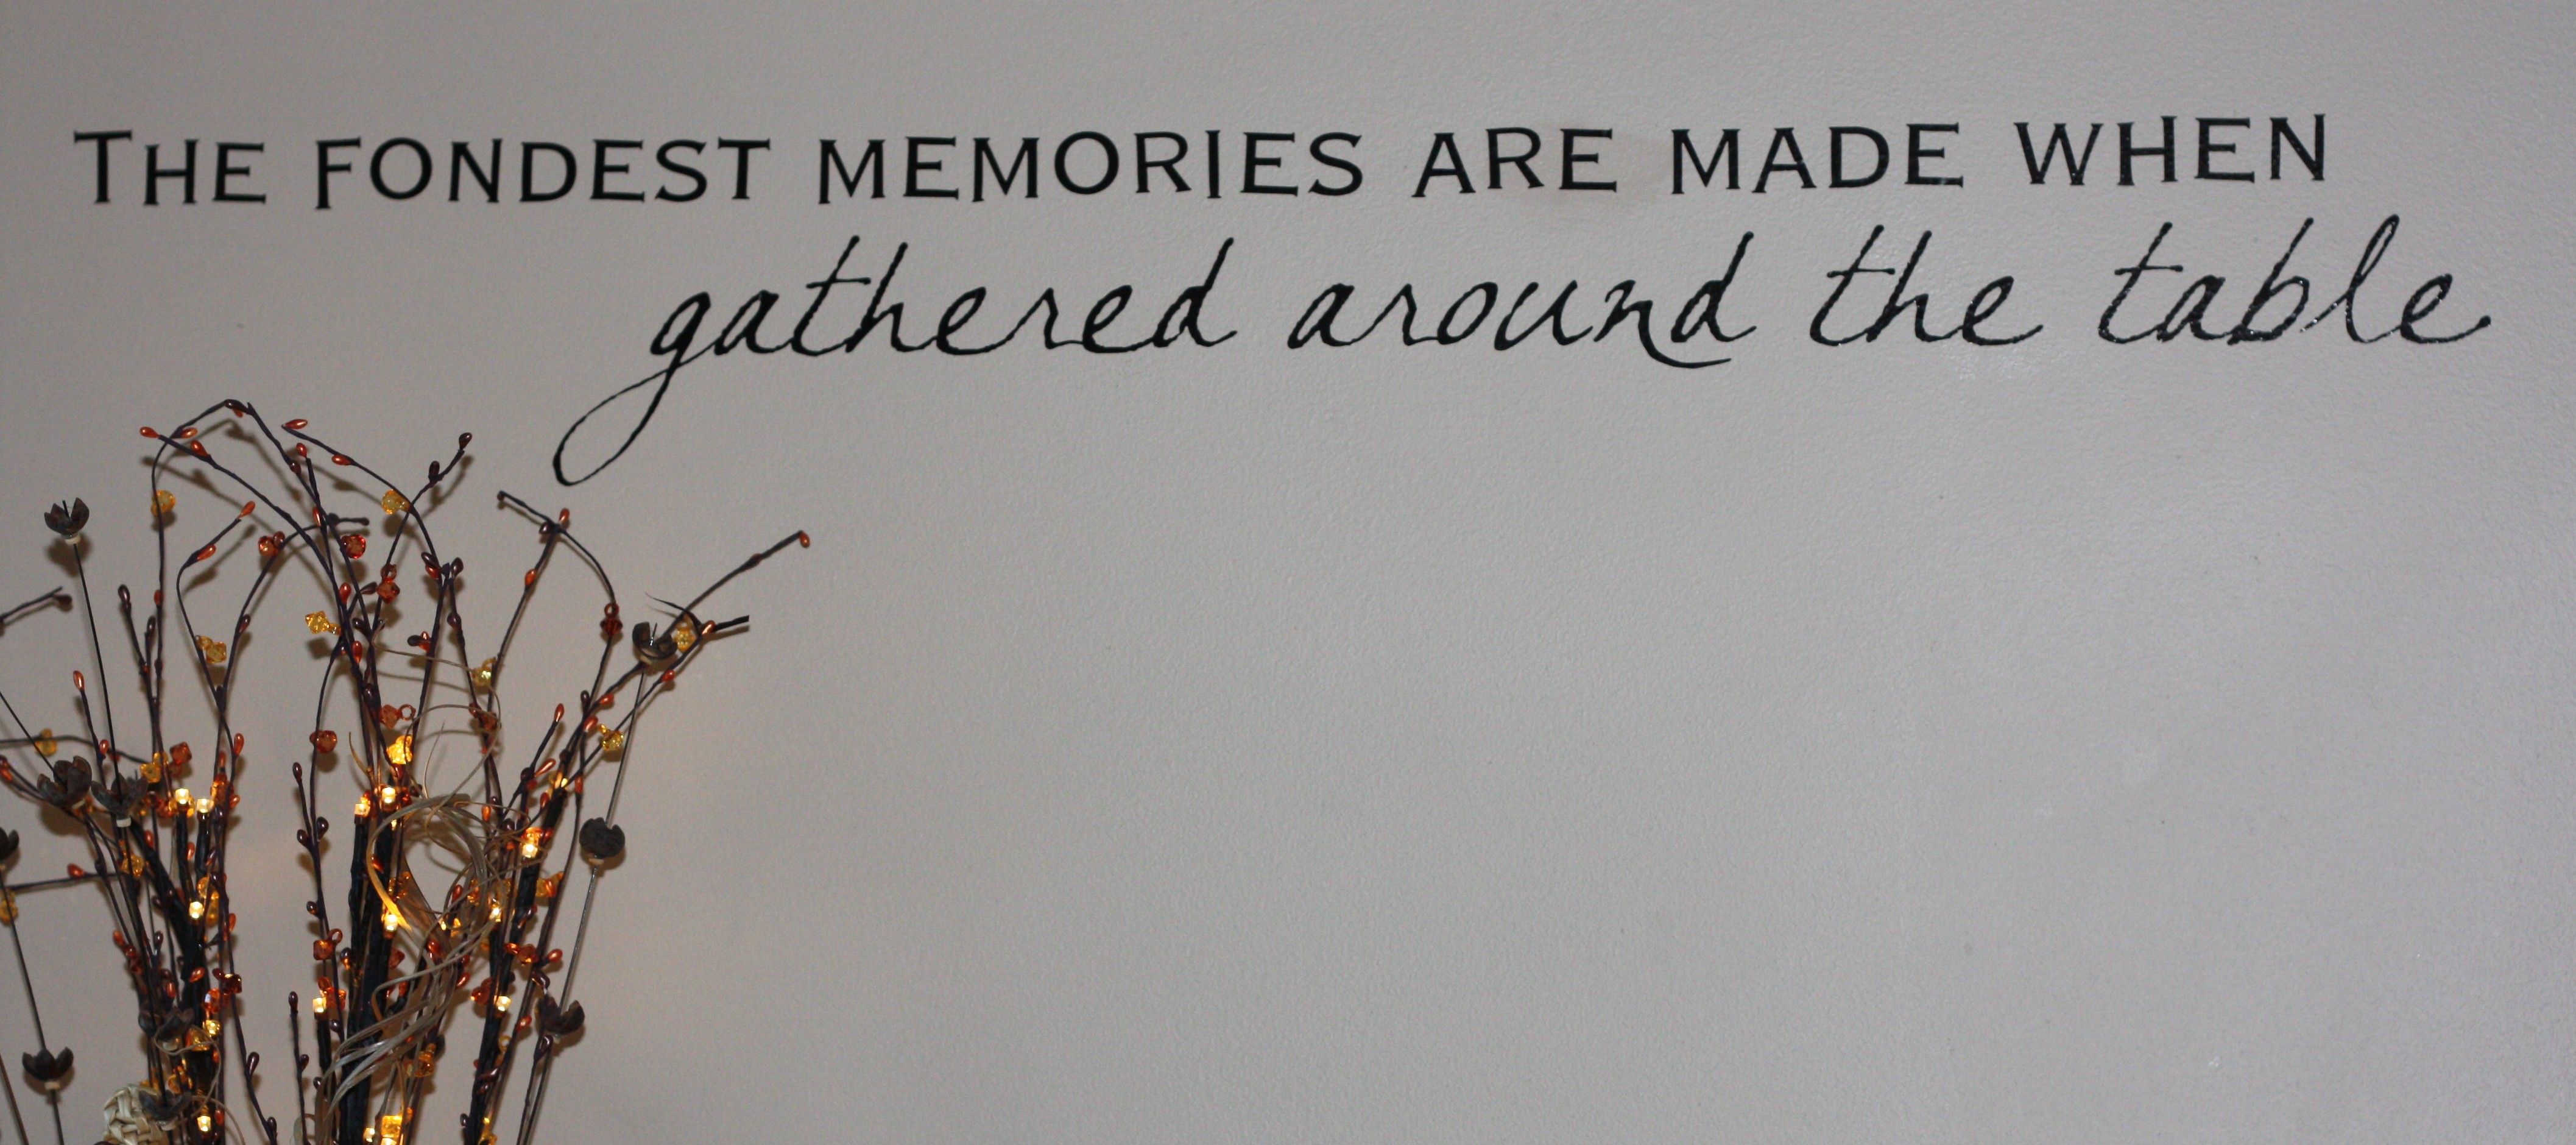 THE FONDEST MEMORIES ARE MADE WHEN
gathered around the table